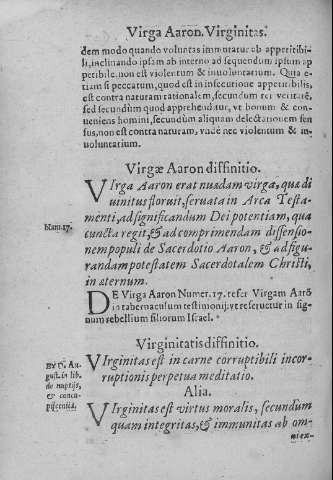 Virga Aaron. Virginitas.
dem modo quando voluntas immutatur ab appetitibi-
li, inclinando ipsam ab interno ad sequendum ipsum ap
petibile. non est violentum & involuntarium. Quia e-
tiam si peccatum, quod est in insecutione appetibilis,
est contra naturam rationalem, secundum rei veritatē,
sed secundùm quod apprehenditur, vt bonum & con-
ueniens homini, secundùm aliquam delectationem sen
sus, non est contra naturam, vnde nec violentum & in-
uoluntarium.
Virgæ Aaron diffinitio.
VIrga Aaron erat nuda virga, quæ di
uinitus floruit, seruata in Arca Testa-
menti, ad significandum Dei potentiam, qua
Num. 17.
cuncta regit, & ad comprimendam dissensio-
nem populi de Sacerdotio Aaron, & ad figu-
randam potestatem Sacerdotalem Christi,
in æternum.
DE Virga Aaron Numer. 17. refer Virgam Aarō
in tabernaculum testimonij, vt reseruetur in sig-
num rebellium filiorum Israel.
Virginitatis diffinitio.
Ex D. Au-
gust. in lib.
de nuptijs,
& concu-
piscentia,
VIrginitas est in carne corruptibili incor-
ruptionis perpetua meditatio.
Alia.
VIrginitas est virtus moralis, secundum
quam integritas, & immunitas ab om-
ni ex-